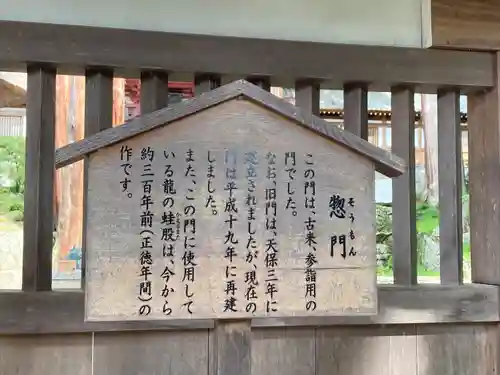 惣門
そうもん
この門は、古来、参詣用の
門でした。
なお、旧門は、天保三年に
建立されましたが、現在の
門は平成十九年に再建
しました。
また、この門に使用して
いる龍の蛙股は、今から
かえるまた
約三百年前(正徳年間)の
作です。